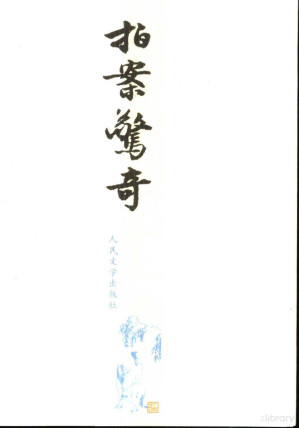 拍案驚奇
人民文学出版社